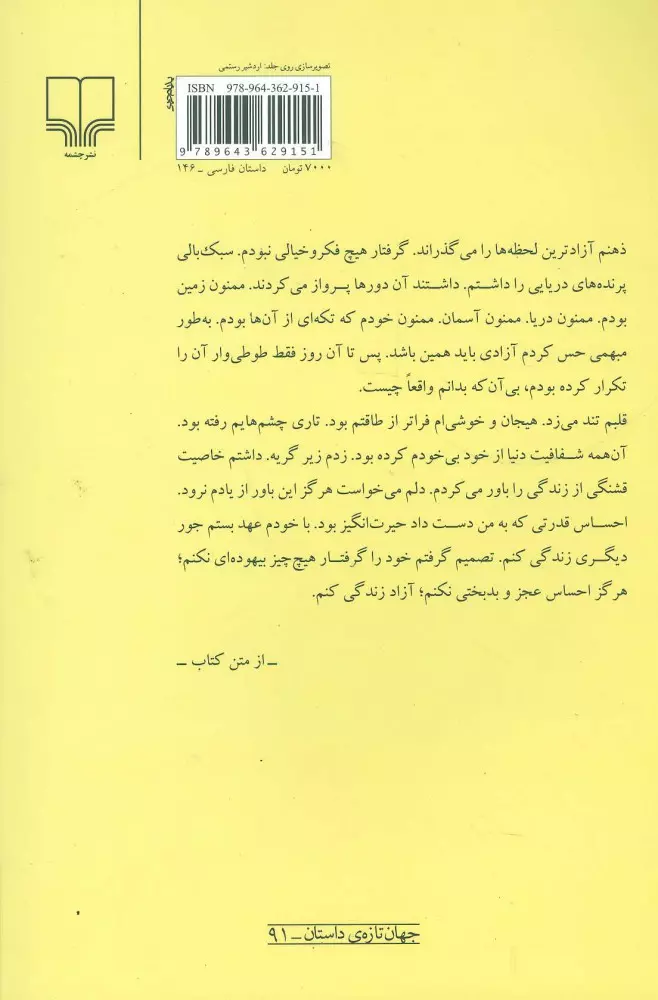 تصویرسازی روی جلد: اردشیر رستمی
ISBN 978-964-362-915-1
9 789643 629151
داستان فارسی ـ ۱۴۶
۷۰۰۰ تومان
نشرچشمه
ذهنم آزادترین لحظه‌ها را می‌گذراند. گرفتار هیچ فکروخیالی نبودم. سبک‌بالی
پرنده‌های دریایی را داشتم. داشتند آن دورها پرواز می‌کردند. ممنون زمین
بودم. ممنون دریا. ممنون آسمان. ممنون خودم که تکه‌ای از آن‌ها بودم. به‌طور
مبهمی حس کردم آزادی باید همین باشد. پس تا آن روز فقط طوطی‌وار آن را
تکرار کرده بودم، بی‌آن‌که بدانم واقعاً چیست.
قلبم تند می‌زد. هیجان و خوشی‌ام فراتر از طاقتم بود. تاری چشم‌هایم رفته بود.
آن‌همه شفافیت دنیا از خود بی‌خودم کرده بود. زدم زیر گریه. داشتم خاصیت
قشنگی از زندگی را باور می‌کردم. دلم می‌خواست هرگز این باور از یادم نرود.
احساس قدرتی که به من دست داد حیرت‌انگیز بود. با خودم عهد بستم جور
دیگری زندگی کنم. تصمیم گرفتم خود را گرفتار هیچ‌چیز بیهوده‌ای نکنم؛
هرگز احساس عجز و بدبختی نکنم؛ آزاد زندگی کنم.
ـ از متن کتاب ـ
جهان تازه‌ی داستان ـ ۹۱